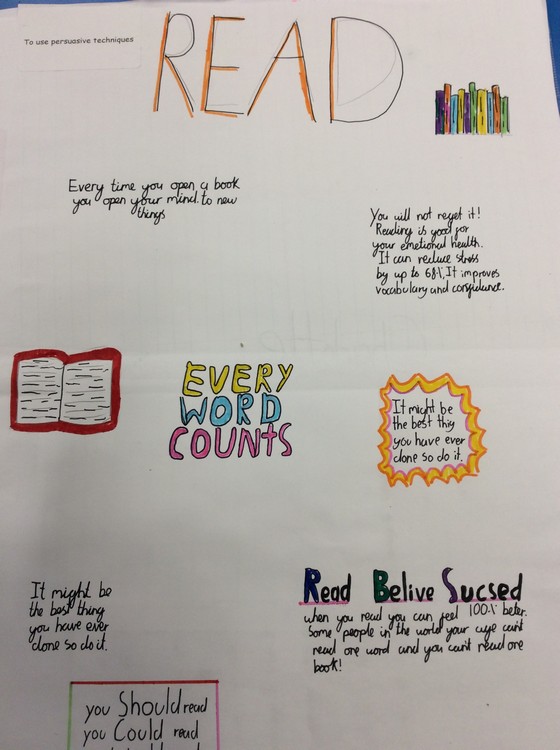 To use persuasive techniques
READ
Every time you open a book
you open your mind to new
things
You will not reget it!
Reading is good for
your emotional health.
It can reduce stress
by up to 68%. It improves
vocabulary and confidance.
EVERY
WORD
COUNTS
It might be
the best thig
you have ever
done so do it.
It might be
the best thing
you have ever
done so do it.
Read Belive Sucsed
when you read you can feel 100% better.
Some people in the world your age cant
read one word and you cant read one
book!
you Should read
you Could read